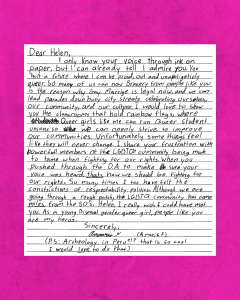 Dear Helen,
I only know your voice through ink on
paper, but I can already tell I admire you. You
built a future where I can be proud, out and unapologetically
queer. So many of us can now. Bravery from people like you
is the reason why gay marriage is legal now, and we can
lead parades down busy city streets celebrating ourselves,
our community, and our culture. I would love to show
you the classrooms that hold rainbow flags, where
Queer girls like me can run Queer Student
Unions so we can openly strive to improve
our communities. Unfortunately some things feel
like they will never change. I share your frustration with
powerful members of the LGBTQ community being much
to tame when fighting for our rights. When you
pushed through the DA to make sure your
voice was heard, that's how we should be fighting for
our rights. So many times I too have felt the
constrictions of respectability politics. Although we are
going through a rough patch, the LGBTQ community has come
miles from the 50's. Helen, I really wish I could have met
you. As a young gender queer girl, people like you
are my heros.
Sincerely,
(PS: Archeology in Peru?!? that is so cool
I would love to do that)